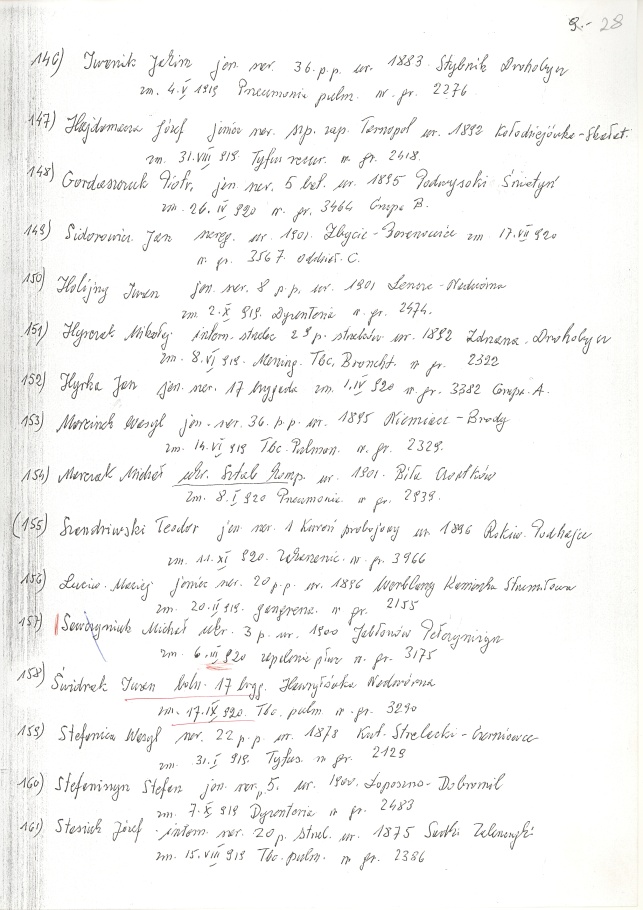 9.- 28
146) Iwanik Jakim jen. ner. 36. p.p. ur. 1883 Stybnik Drohobycz
zm. 4.V 1919 Pneumonia pulm. nr. gr. 2276
147) Hajdamacza Józef jeniec ner. szp. zap. Tarnopol ur. 1892 Kołodziejówka-Skałat.
zm. 31.VIII 919. Tyfus recur. nr gr. 2418.
148) Gordaszczuk Piotr, jen ner. 5 bat. ur. 1895 Podwysoki Śniatyń
zm. 26. IV 920 nr. gr. 3464 Grupa B.
149) Sidorowicz Jan szereg. ur. 1901. zm 17.VII 920
nr. gr. 3567. oddział. C.
150) Holijny Iwan jen. ner. 8 p.p. ur. 1901 -Nadwórna
zm. 2.X 919. Dyzenteria nr gr. 2474.
151) Hyrczak Mikołaj intern. 29 p. strzelców ur. 1892 Drohobycz
zm. 8.VI 919. Mening. Tbc, Broncht. nr gr. 2322
152) Hyrka Jan jen. ner. 17 brygada zm. 1.IV 920 nr. gr. 3382 Grupa. A.
153) Marciniuk Wasyl jen. ner. 36. p.p. ur. 1895 - Brody
zm. 14.VI 919 Tbc. Pulmon. nr. gr. 2329.
154) Marczak Michał ukr. Sztab Komp. ur. 1901. Biła Czortków
zm. 8.I 920 Pneumonia nr gr. 2939.
(155) Szandriwski Teodor jen ner. 1 Kureń probojowy ur. 1896 Podhajce
zm. 11. XI 920. Zakażenie. nr. gr. 3966
156) Luciw Maciej jeniec ner. 20 p.p. ur. 1896 Kamionka Strumiłowa
zm. 20.II 919. gangrena. nr gr. 2155
157) Michał ukr. 3 p. ur. 1900 Jabłonów Peczyniżyn
zm. 6.III 920 zapalenie płuc nr gr. 3175
158) Świdrak Iwan 17 bryg. Hawryłówka Nadwórna
zm. 17.IX 920. Tbc. pulm nr. gr. 3290
159) Wasyl ner. 22 p.p ur. 1878 Strelecki-Czerniowce
zm. 31. I 919. Tyfus. nr gr. 2129
160) Stefaniszyn Stefan jen. ner, 5. ur. 1900. Łopuszna-Dobromil
zm. 7.X 919 Dyzenteria nr gr. 2483
161) Stasiuk Józef intern. ner. 20 p. strzel. ur. 1875 Sadki Zaleszczyki
zm. 15.VIII 919 Tbc.pulm. nr gr. 2386